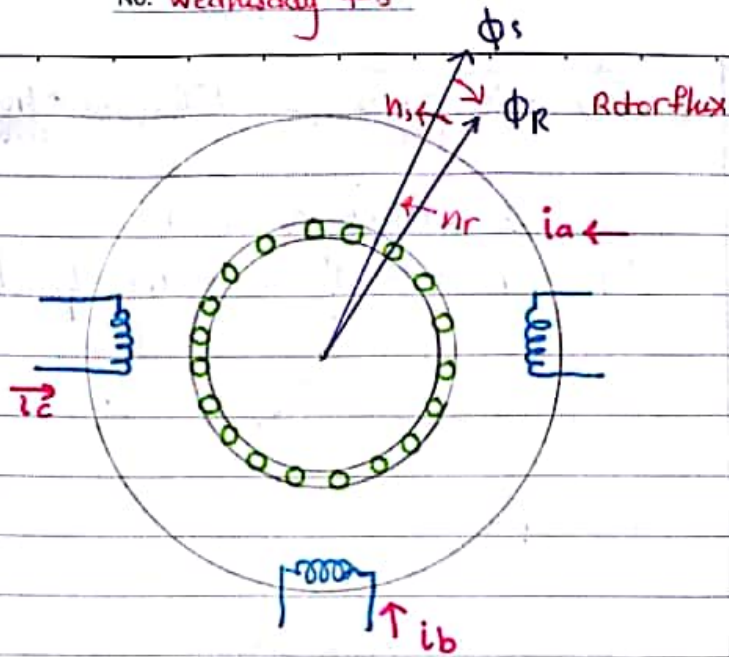 No. Wednesday
ϕs
ns
ϕR Rotorflux
nr
ia
ic
ib